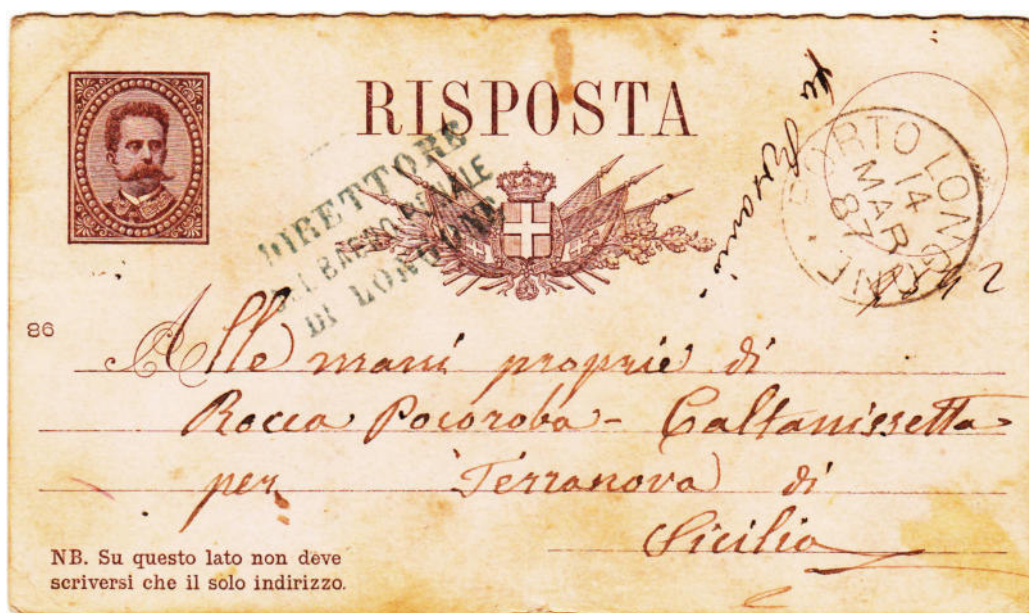 RISPOSTA
DIRETTORE
DEL BAGNO PENALE
DI LONGONE
PORTO LONGONE
14
MAR
87
86
Alle mani proprie di
Rocca Pocoroba - Caltanissetta
per Terranova di
Sicilia
NB. Su questo lato non deve
scriversi che il solo indirizzo.